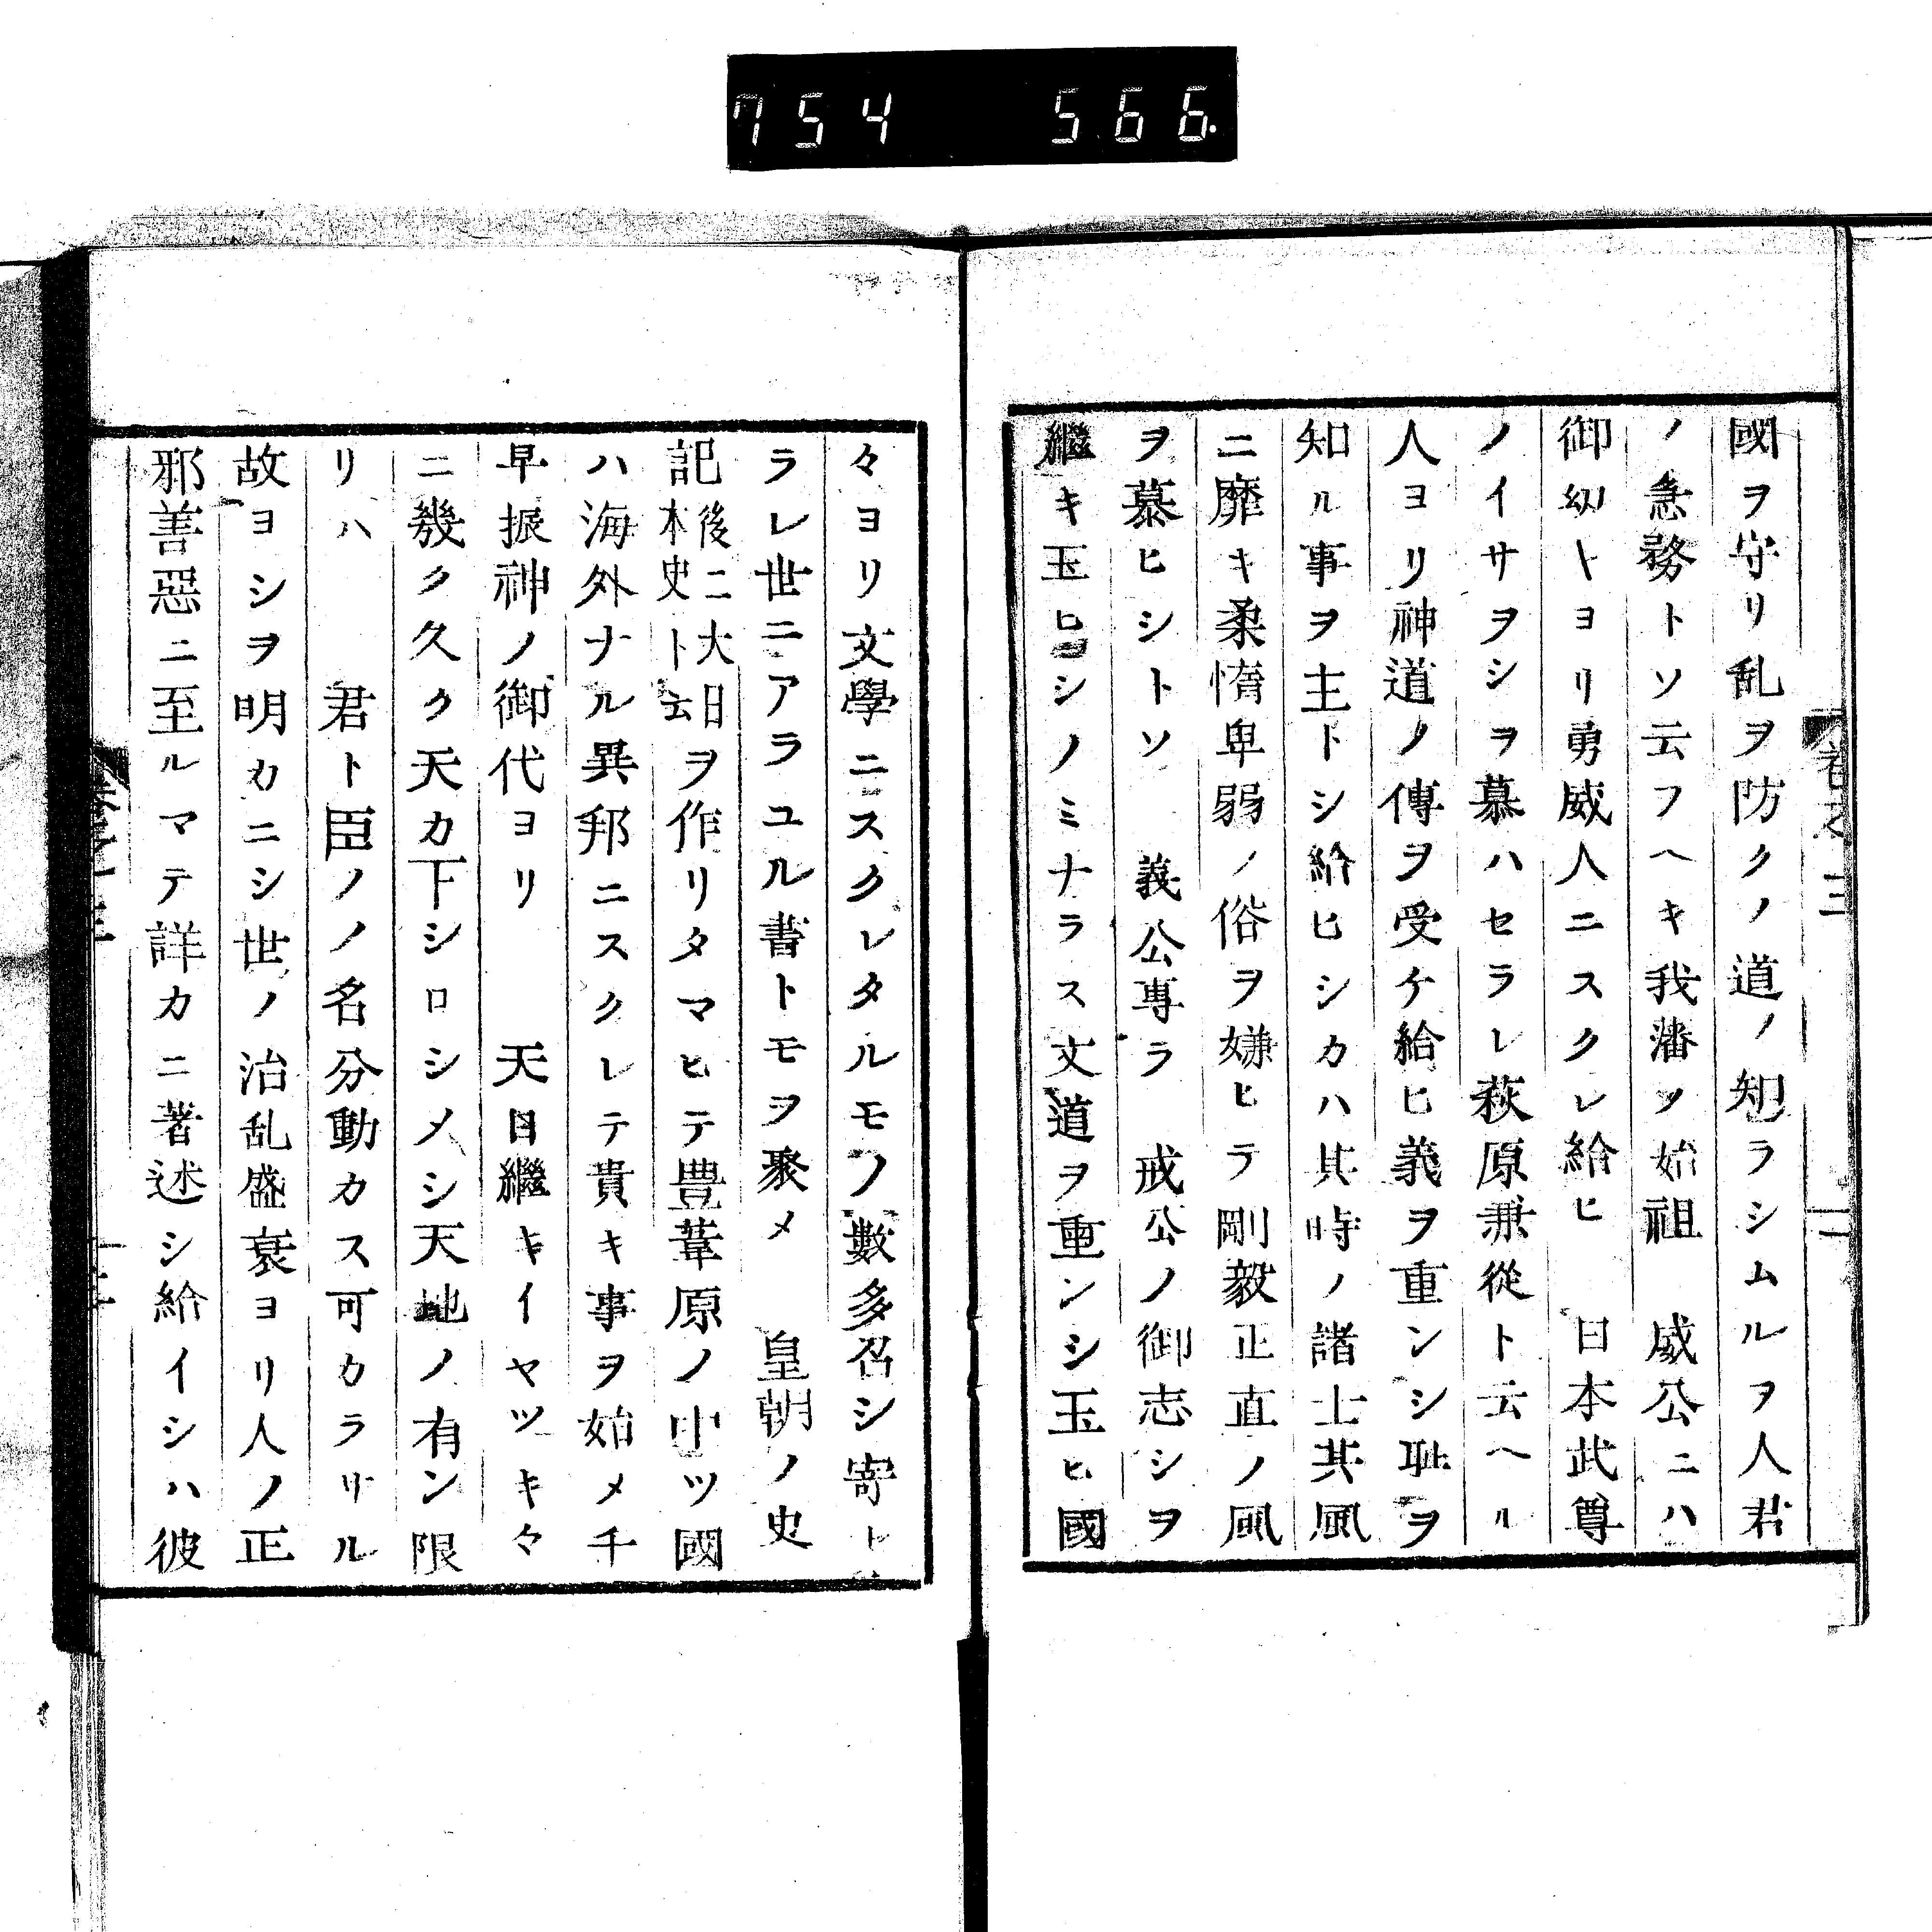 754 566.
國ヲ守リ乱ヲ防クノ道ノ知ラシムルヲ人君
ノ急務トソ云フヘキ我藩ノ始祖 威公ニハ
御幼ヤヨリ勇威人ニスクレ給ヒ 日本武尊
ノイサヲシヲ慕ハセラレ萩原兼從ト云ヘル
人ヨリ神道ノ傳ヲ受ケ給ヒ義ヲ重ンシ耻ヲ
知ル事ヲ主トシ給ヒシカハ其時ノ諸士其風
ニ靡キ柔惰卑弱ノ俗ヲ嫌ヒテ剛毅正直ノ風
ヲ慕ヒシトソ 義公專ラ 戒公ノ御志シヲ
繼キ玉ヒシノミナラス文道ヲ重ンシ玉ヒ國
々ヨリ文學ニスクレタルモノ數多召シ寄ト
ラレ世ニアラユル書トモヲ聚メ 皇朝ノ史
記後ニ大日本史ト云ヲ作リタマヒテ豊葦原ノ中ツ國
ハ海外ナル異邦ニスクレテ貴キ事ヲ始メ千
早振神ノ御代ヨリ 天日繼キイヤツキ々
ニ幾ク久ク天カ下シロシメシ天地ノ有ン限
リハ 君ト臣ノノ名分動カス可カラサル
故ヨシヲ明カニシ世ノ治乱盛衰ヨリ人ノ正
邪善惡ニ至ルマテ詳カニ著述シ給イシハ彼